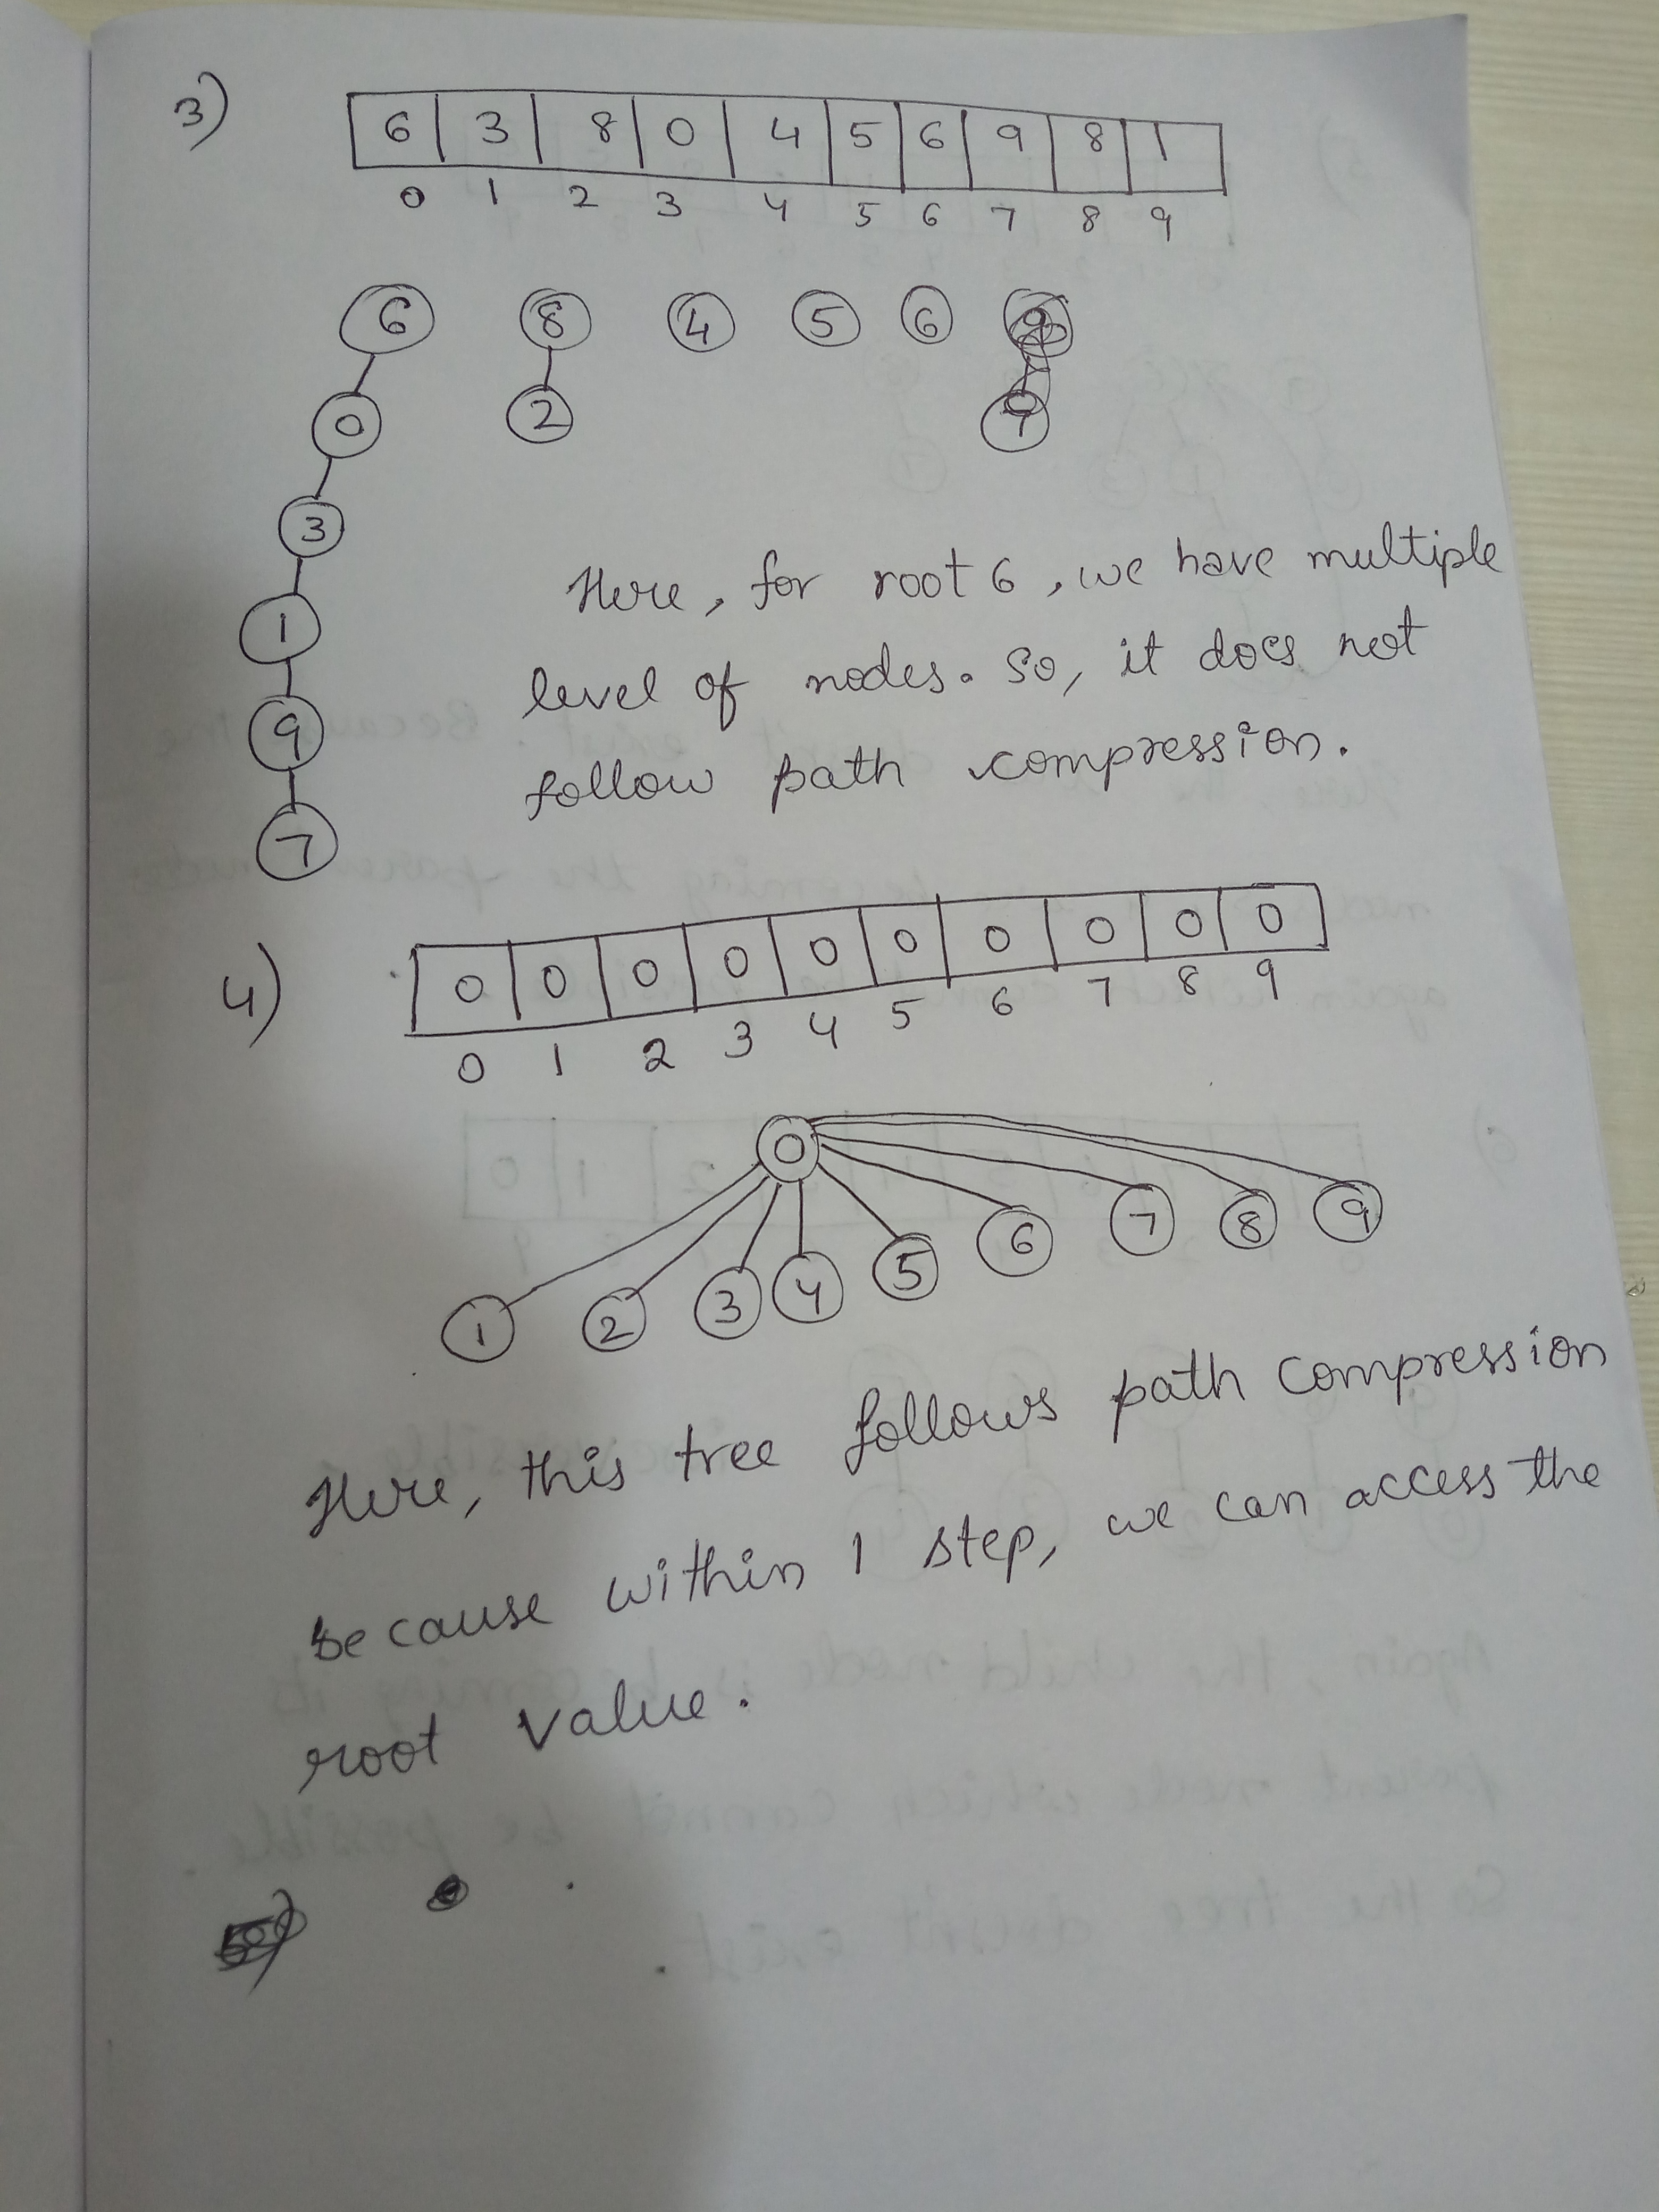 3)
6 3 8 0 4 5 6 9 8 1
0 1 2 3 4 5 6 7 8 9
6 8 4 5 6
0 2
3
1
9
7
Here, for root 6, we have multiple
level of nodes. So, it does not
follow path compression.
4)
0 0 0 0 0 0 0 0 0 0
0 1 2 3 4 5 6 7 8 9
0
1 2 3 4 5 6 7 8 9
Here, this tree follows path compression
because within 1 step, we can access the
root value.